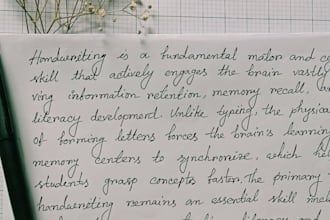 Handwriting is a fundamental motor and co
skill that actively engages the brain vastly
ving information retention, memory recall, an
literacy development. Unlike typing, the physica
of forming letters forces the brain's learning
memory centers to synchronize, which hel
students grasp concepts faster. The primary
handwriting remains an essential skill